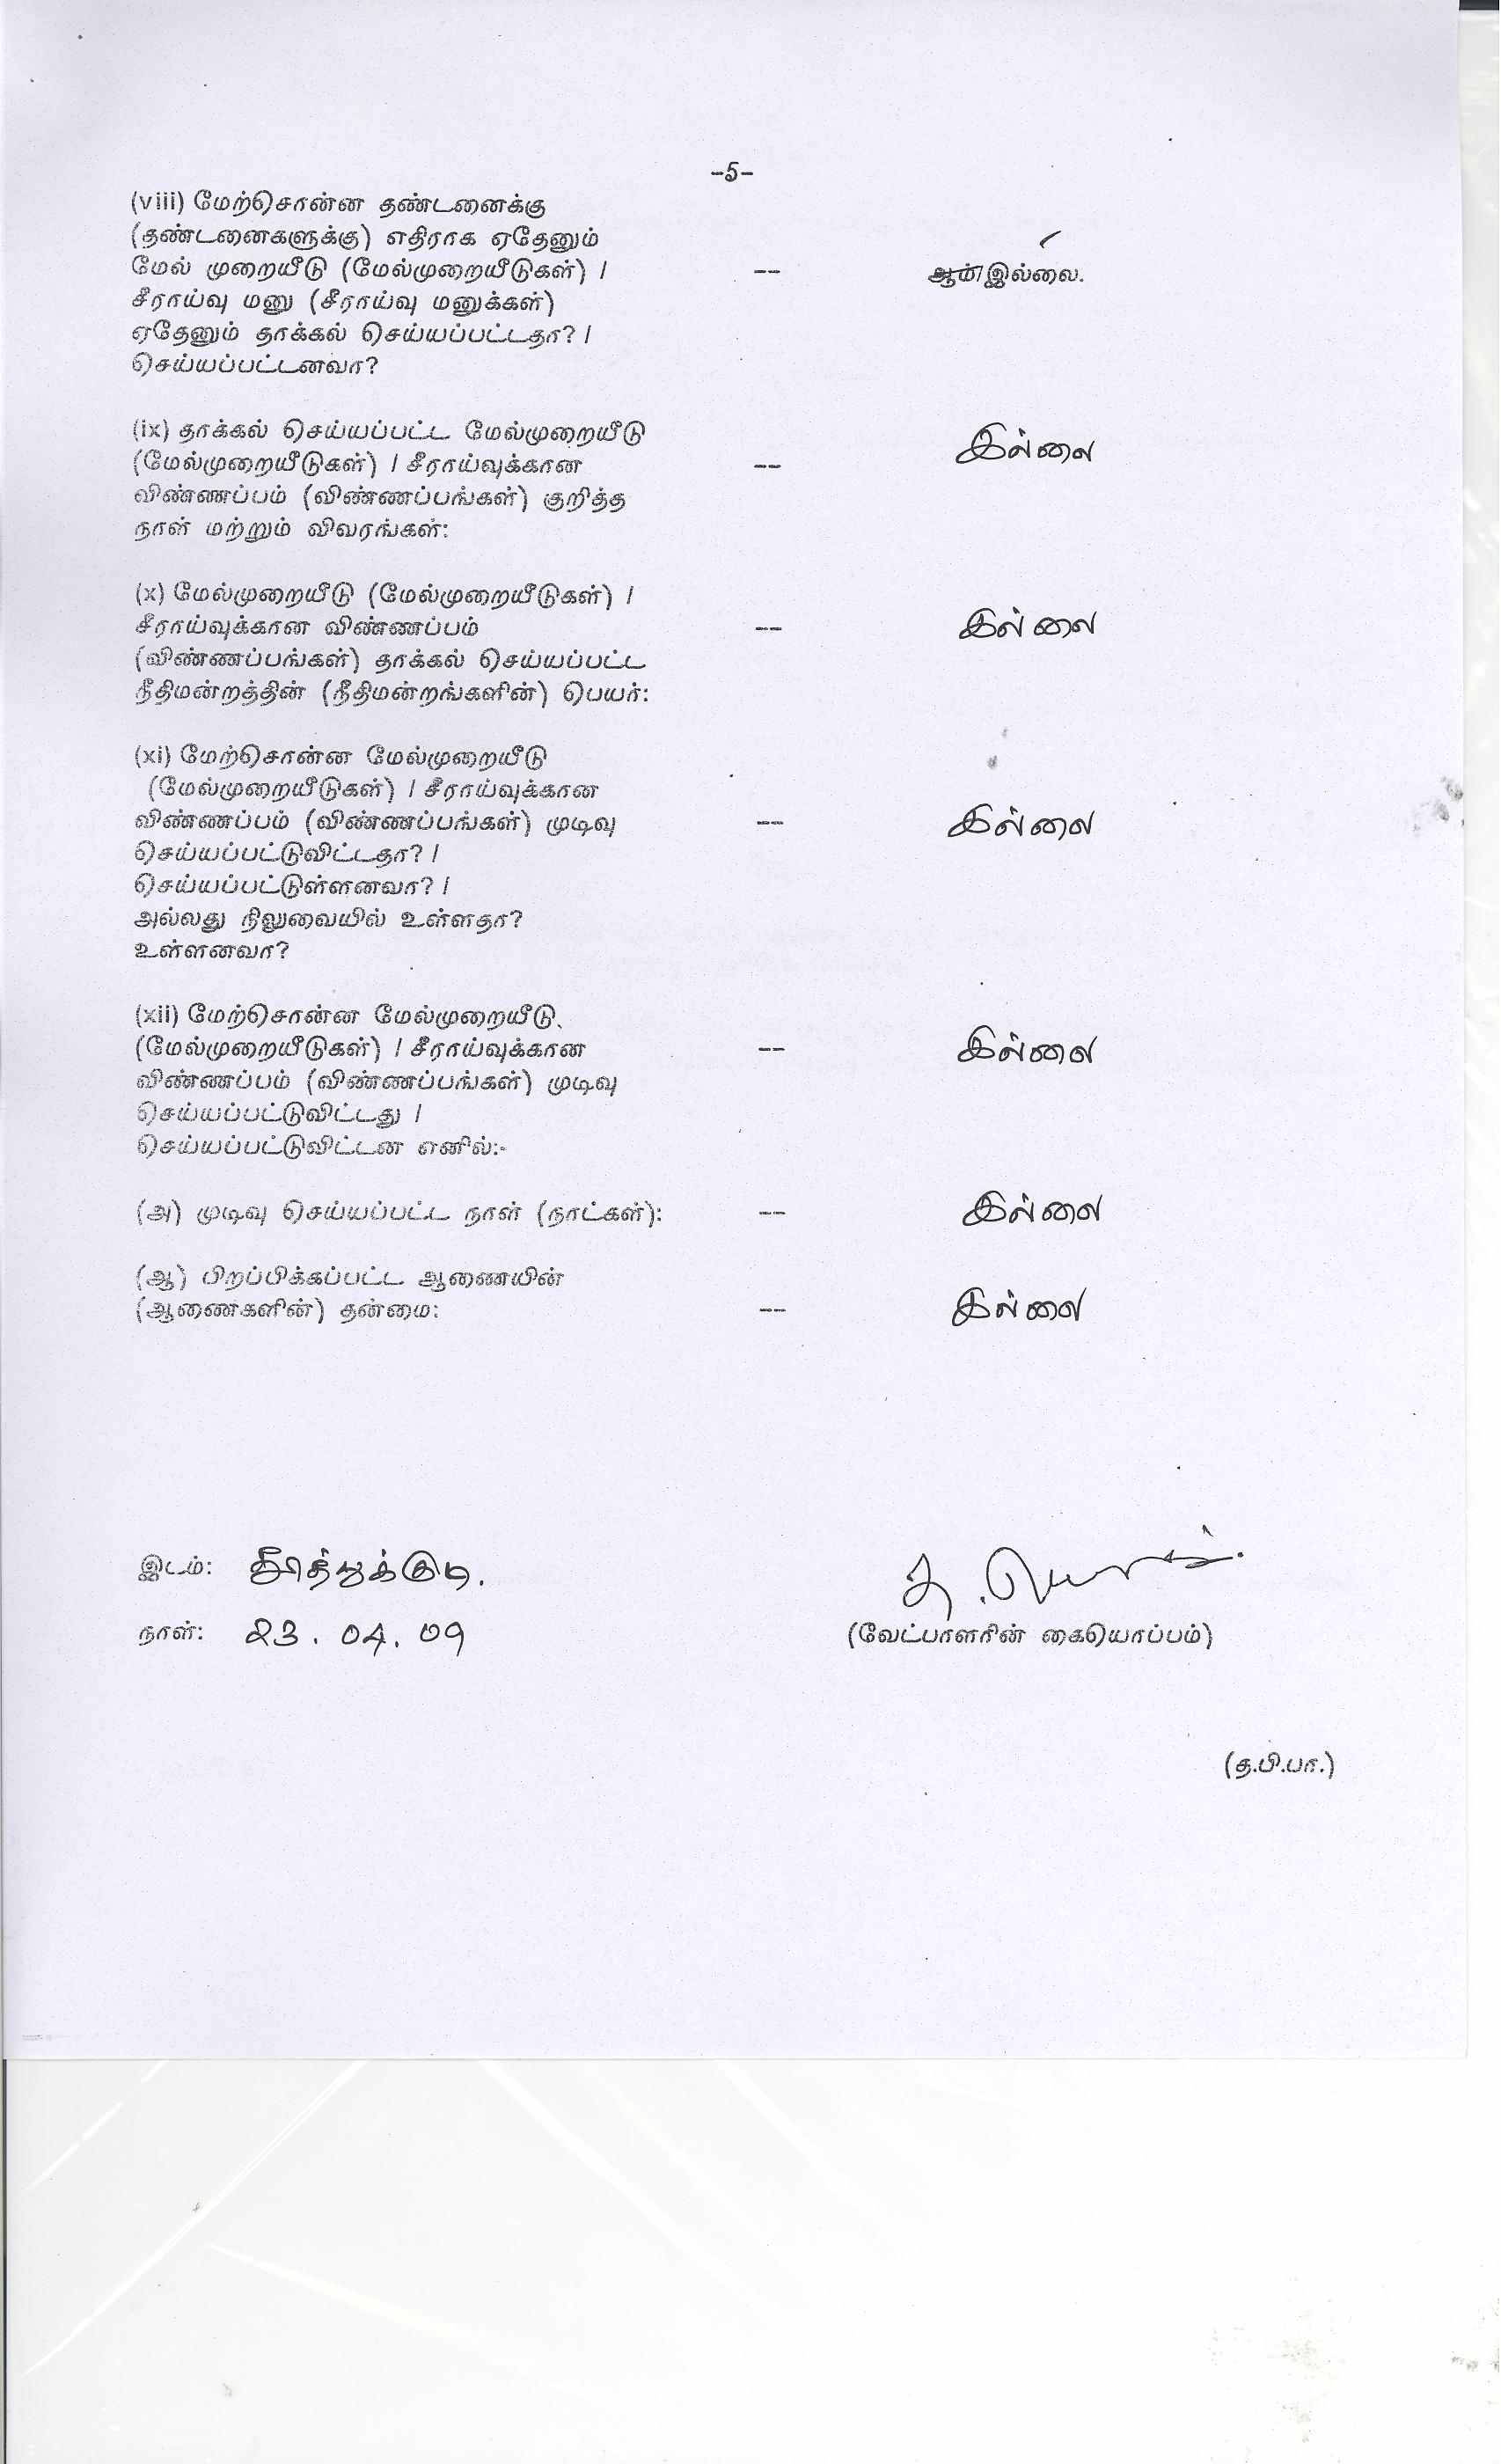 -5-
(viii) மேற்சொன்ன தண்டனைக்கு
(தண்டனைகளுக்கு) எதிராக ஏதேனும்
மேல் முறையீடு (மேல்முறையீடுகள்) / -- ஆம்/இல்லை.
சீராய்வு மனு (சீராய்வு மனுக்கள்)
ஏதேனும் தாக்கல் செய்யப்பட்டதா? /
செய்யப்பட்டனவா?
(ix) தாக்கல் செய்யப்பட்ட மேல்முறையீடு
(மேல்முறையீடுகள்) / சீராய்வுக்கான -- இல்லை
விண்ணப்பம் (விண்ணப்பங்கள்) குறித்த
நாள் மற்றும் விவரங்கள்:
(x) மேல்முறையீடு (மேல்முறையீடுகள்) /
சீராய்வுக்கான விண்ணப்பம் -- இல்லை
(விண்ணப்பங்கள்) தாக்கல் செய்யப்பட்ட
நீதிமன்றத்தின் (நீதிமன்றங்களின்) பெயர்:
(xi) மேற்சொன்ன மேல்முறையீடு
(மேல்முறையீடுகள்) / சீராய்வுக்கான
விண்ணப்பம் (விண்ணப்பங்கள்) முடிவு -- இல்லை
செய்யப்பட்டுவிட்டதா? /
செய்யப்பட்டுள்ளனவா? /
அல்லது நிலுவையில் உள்ளதா?
உள்ளனவா?
(xii) மேற்சொன்ன மேல்முறையீடு
(மேல்முறையீடுகள்) / சீராய்வுக்கான -- இல்லை
விண்ணப்பம் (விண்ணப்பங்கள்) முடிவு
செய்யப்பட்டுவிட்டது /
செய்யப்பட்டுவிட்டன எனில்:-
(அ) முடிவு செய்யப்பட்ட நாள் (நாட்கள்): -- இல்லை
(ஆ) பிறப்பிக்கப்பட்ட ஆணையின்
(ஆணைகளின்) தன்மை: -- இல்லை
இடம்:
நாள்: 23.04.09 (வேட்பாளரின் கையொப்பம்)
(த.பி.பா.)